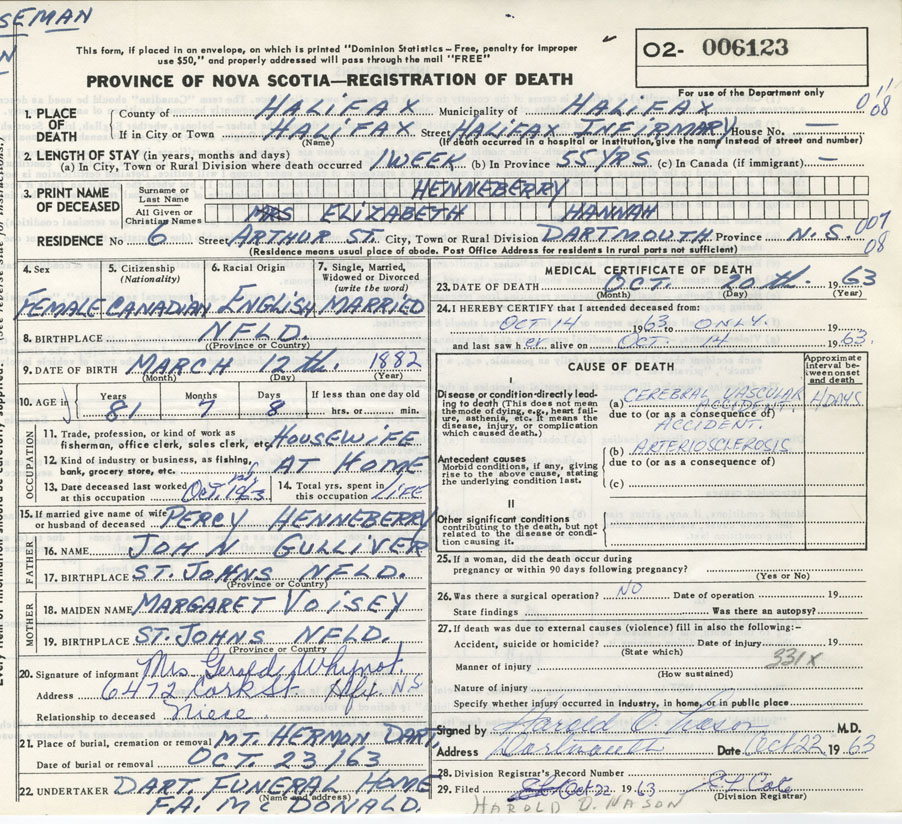 SEMAN
N
This form, if placed in an envelope, on which is printed "Dominion Statistics—Free, penalty for improper
use $50," and properly addressed will pass through the mail "FREE"
PROVINCE OF NOVA SCOTIA—REGISTRATION OF DEATH
02- 006123
For use of the Department only
1. PLACE OF DEATH
County of HALIFAX Municipality of HALIFAX
If in City or Town HALIFAX Street HALIFAX INFIRMARY House No. —
(Name) (If death occurred in a hospital or institution, give the name instead of street and number)
08
2. LENGTH OF STAY (in years, months and days)
(a) In City, Town or Rural Division where death occurred 1 WEEK (b) In Province 55 YRS (c) In Canada (if immigrant) —
3. PRINT NAME OF DECEASED
Surname or Last Name HENNEBERRY
All Given or Christian Names MRS ELIZABETH HANNAH
RESIDENCE No 6 Street ARTHUR ST. City, Town or Rural Division DARTMOUTH Province N.S. 007
08
(Residence means usual place of abode. Post Office Address for residents in rural parts not sufficient)
4. Sex 5. Citizenship (Nationality) 6. Racial Origin 7. Single, Married, Widowed or Divorced (write the word)
FEMALE CANADIAN ENGLISH MARRIED
8. BIRTHPLACE NFLD.
(Province or Country)
9. DATE OF BIRTH MARCH 12th 1882
(Month) (Day) (Year)
10. AGE in Years Months Days If less than one day
81 7 8 hrs. or min.
OCCUPATION
11. Trade, profession, or kind of work as
fisherman, office clerk, sales clerk, etc. HOUSEWIFE
12. Kind of industry or business, as fishing,
bank, grocery store, etc. AT HOME
13. Date deceased last worked at this occupation Oct. 1963 14. Total yrs. spent in this occupation LIFE
15. If married give name of wife or husband of deceased PERCY HENNEBERRY
FATHER
16. NAME JOHN GULLIVER
17. BIRTHPLACE ST. JOHNS NFLD.
(Province or Country)
MOTHER
18. MAIDEN NAME MARGARET VOISEY
19. BIRTHPLACE ST. JOHNS NFLD.
(Province or Country)
20. Signature of informant Mrs Gerald Whynot
Address 6472 Cork St Hfx. N.S.
Relationship to deceased Niece
21. Place of burial, cremation or removal MT. HERMON DART
Date of burial or removal OCT. 23/63
22. UNDERTAKER DART. FUNERAL HOME
(Name and address)
F.A. McDONALD.
MEDICAL CERTIFICATE OF DEATH
23. DATE OF DEATH OCT. 20th. 1963
(Month) (Day) (Year)
24. I HEREBY CERTIFY that I attended deceased from:
OCT 14 1963 to ONLY. 19
and last saw her alive on OCT. 14 1963.
CAUSE OF DEATH
Approximate interval between onset and death
I
Disease or condition directly leading to death (This does not mean the mode of dying, e.g., heart failure, asthenia, etc. It means the disease, injury, or complication which caused death.)
(a) CEREBRAL VASCULAR 4 DAYS
ACCIDENT
due to (or as a consequence of)
ACCIDENT.
Antecedent causes
Morbid conditions, if any, giving rise to the above cause, stating the underlying condition last.
(b) ARTERIOSCLEROSIS
due to (or as a consequence of)
(c)
II
Other significant conditions
contributing to the death, but not related to the disease or condition causing it.
25. If a woman, did the death occur during
pregnancy or within 90 days following pregnancy?
(Yes or No)
26. Was there a surgical operation? NO Date of operation 19
State findings Was there an autopsy?
27. If death was due to external causes (violence) fill in also the following:—
Accident, suicide or homicide? Date of injury 19
(State which)
331X
Manner of injury
(How sustained)
Nature of injury
Specify whether injury occurred in industry, in home, or in public place
Signed by Harold O. Nason M.D.
Address Dartmouth Date Oct 22 1963
28. Division Registrar's Record Number
29. Filed Oct 22 1963
(Division Registrar)
HAROLD O. NASON